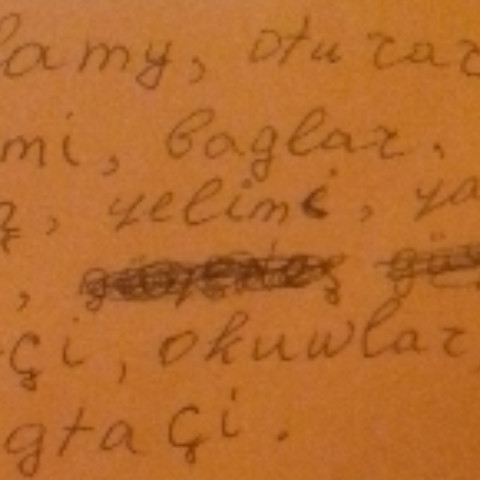 lamy, oturar
mi, baglar.
, yelimi, ya
,
çi, okuwlar,
gtaçi.